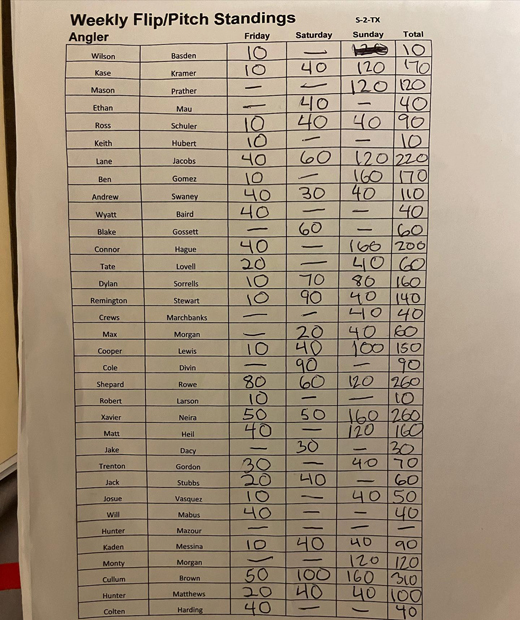 Weekly Flip/Pitch Standings S-2-TX
Angler Friday Saturday Sunday Total
Wilson Basden 10 — 10
Kase Kramer 10 40 120 170
Mason Prather — — 120 120
Ethan Mau — 40 — 40
Ross Schuler 10 40 40 90
Keith Hubert 10 — — 10
Lane Jacobs 40 60 120 220
Ben Gomez 10 — 160 170
Andrew Swaney 40 30 40 110
Wyatt Baird 40 — — 40
Blake Gossett — 60 — 60
Connor Hague 40 — 160 200
Tate Lovell 20 — 40 60
Dylan Sorrells 10 70 80 160
Remington Stewart 10 90 40 140
Crews Marchbanks — — 40 40
Max Morgan — 20 40 60
Cooper Lewis 10 40 100 150
Cole Divin — 90 — 90
Shepard Rowe 80 60 120 260
Robert Larson 10 — — 10
Xavier Neira 50 50 160 260
Matt Heil 40 — 120 160
Jake Dacy — 30 — 30
Trenton Gordon 30 — 40 70
Jack Stubbs 20 40 — 60
Josue Vasquez 10 — 40 50
Will Mabus 40 — — 40
Hunter Mazour — — — —
Kaden Messina 10 40 40 90
Monty Morgan — — 120 120
Cullum Brown 50 100 160 310
Hunter Matthews 20 40 40 100
Colten Harding 40 — — 40